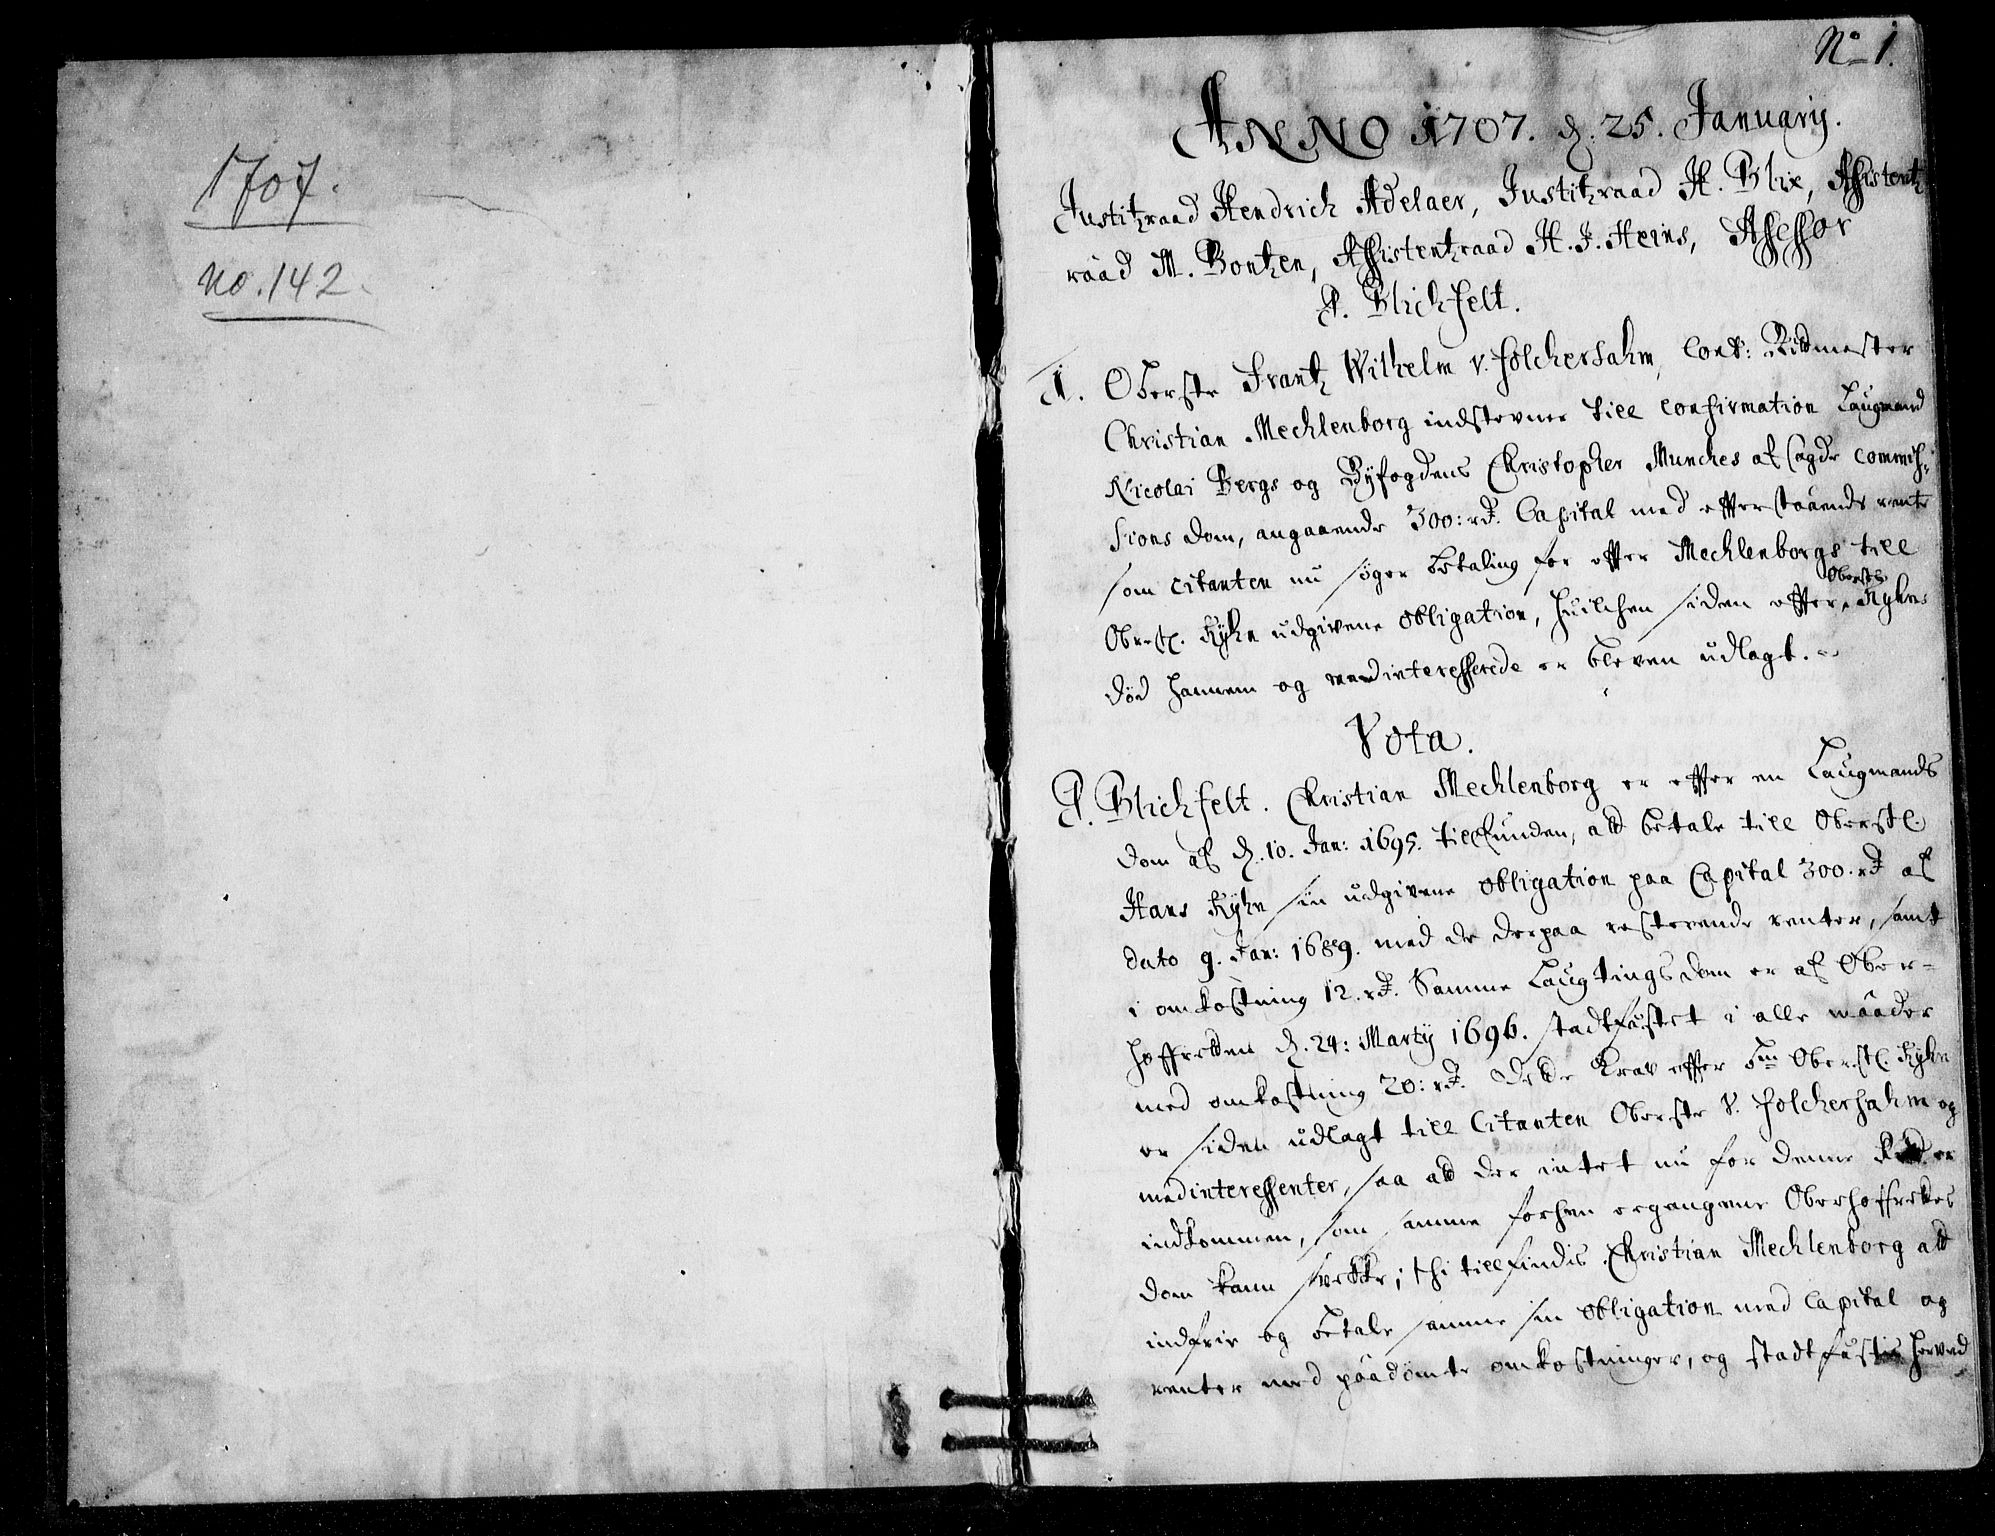 1707.
no. 142.
No 1.
ANNO 1707. d. 25. Januarij.
Justitzraad Hendrich Adelaer, Justitzraad H. Blix, Assistentz
raad M. Bontzen, Assistentzraad H. J. Heins, Assessor
P. Blichfelt.
1. Oberste Frantz Wilhelm v. Folchersahm, Cont: Ridmester
Christian Mechlenborg indstevner till confirmation Laugmand
Nicolai Bergs og Byfogdens Christopher Munches afsagde commis-
sions dom, angaaende 300: rdr. Capital med efterstaaende rente
som citanten nu søger betaling for efter Mechlenborgs till
Oberstl. Kyhn udgivene obligation, huilchen siden efter Oberstl: Kyhns
død hannem og medinteresserede er bleven udlagt.
Vota.
P. Blichfelt. Christian Mechlenborg er efter en Laugmands
dom af d. 10. Jan: 1695. tillfunden, att betale till Oberstl.
Hans Kyhn sin udgivene obligation paa Capital 300. rdr af
dato 9. Jan: 1689. med de derpaa resterende renter, samt
i omkostning 12. rdr. Samme Laugtings dom er af Ober-
hoffretten d. 24: Martij 1696. stadfæstet i alle maader
med omkostning 20: rdr. Dette Krav efter Oberstl. Kyhn
er siden udlagt till Citanten Oberste V. Folchersahm og
medinteressenter, saa att der intet nu for denne Rett er
indkommen, som samme forhen ergangene Oberhoffrettes
dom kann svekke; thi tillfindis Christian Mechlenborg att
indfrie og betale samme sin obligation med Capital og
renter med paadømte omkostninger, og stadfæstis herved